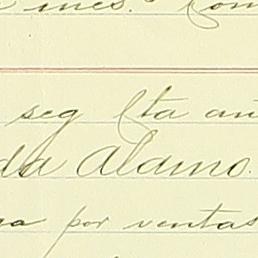 ines. Com
seg Cta an
da Alamo.
por ventas